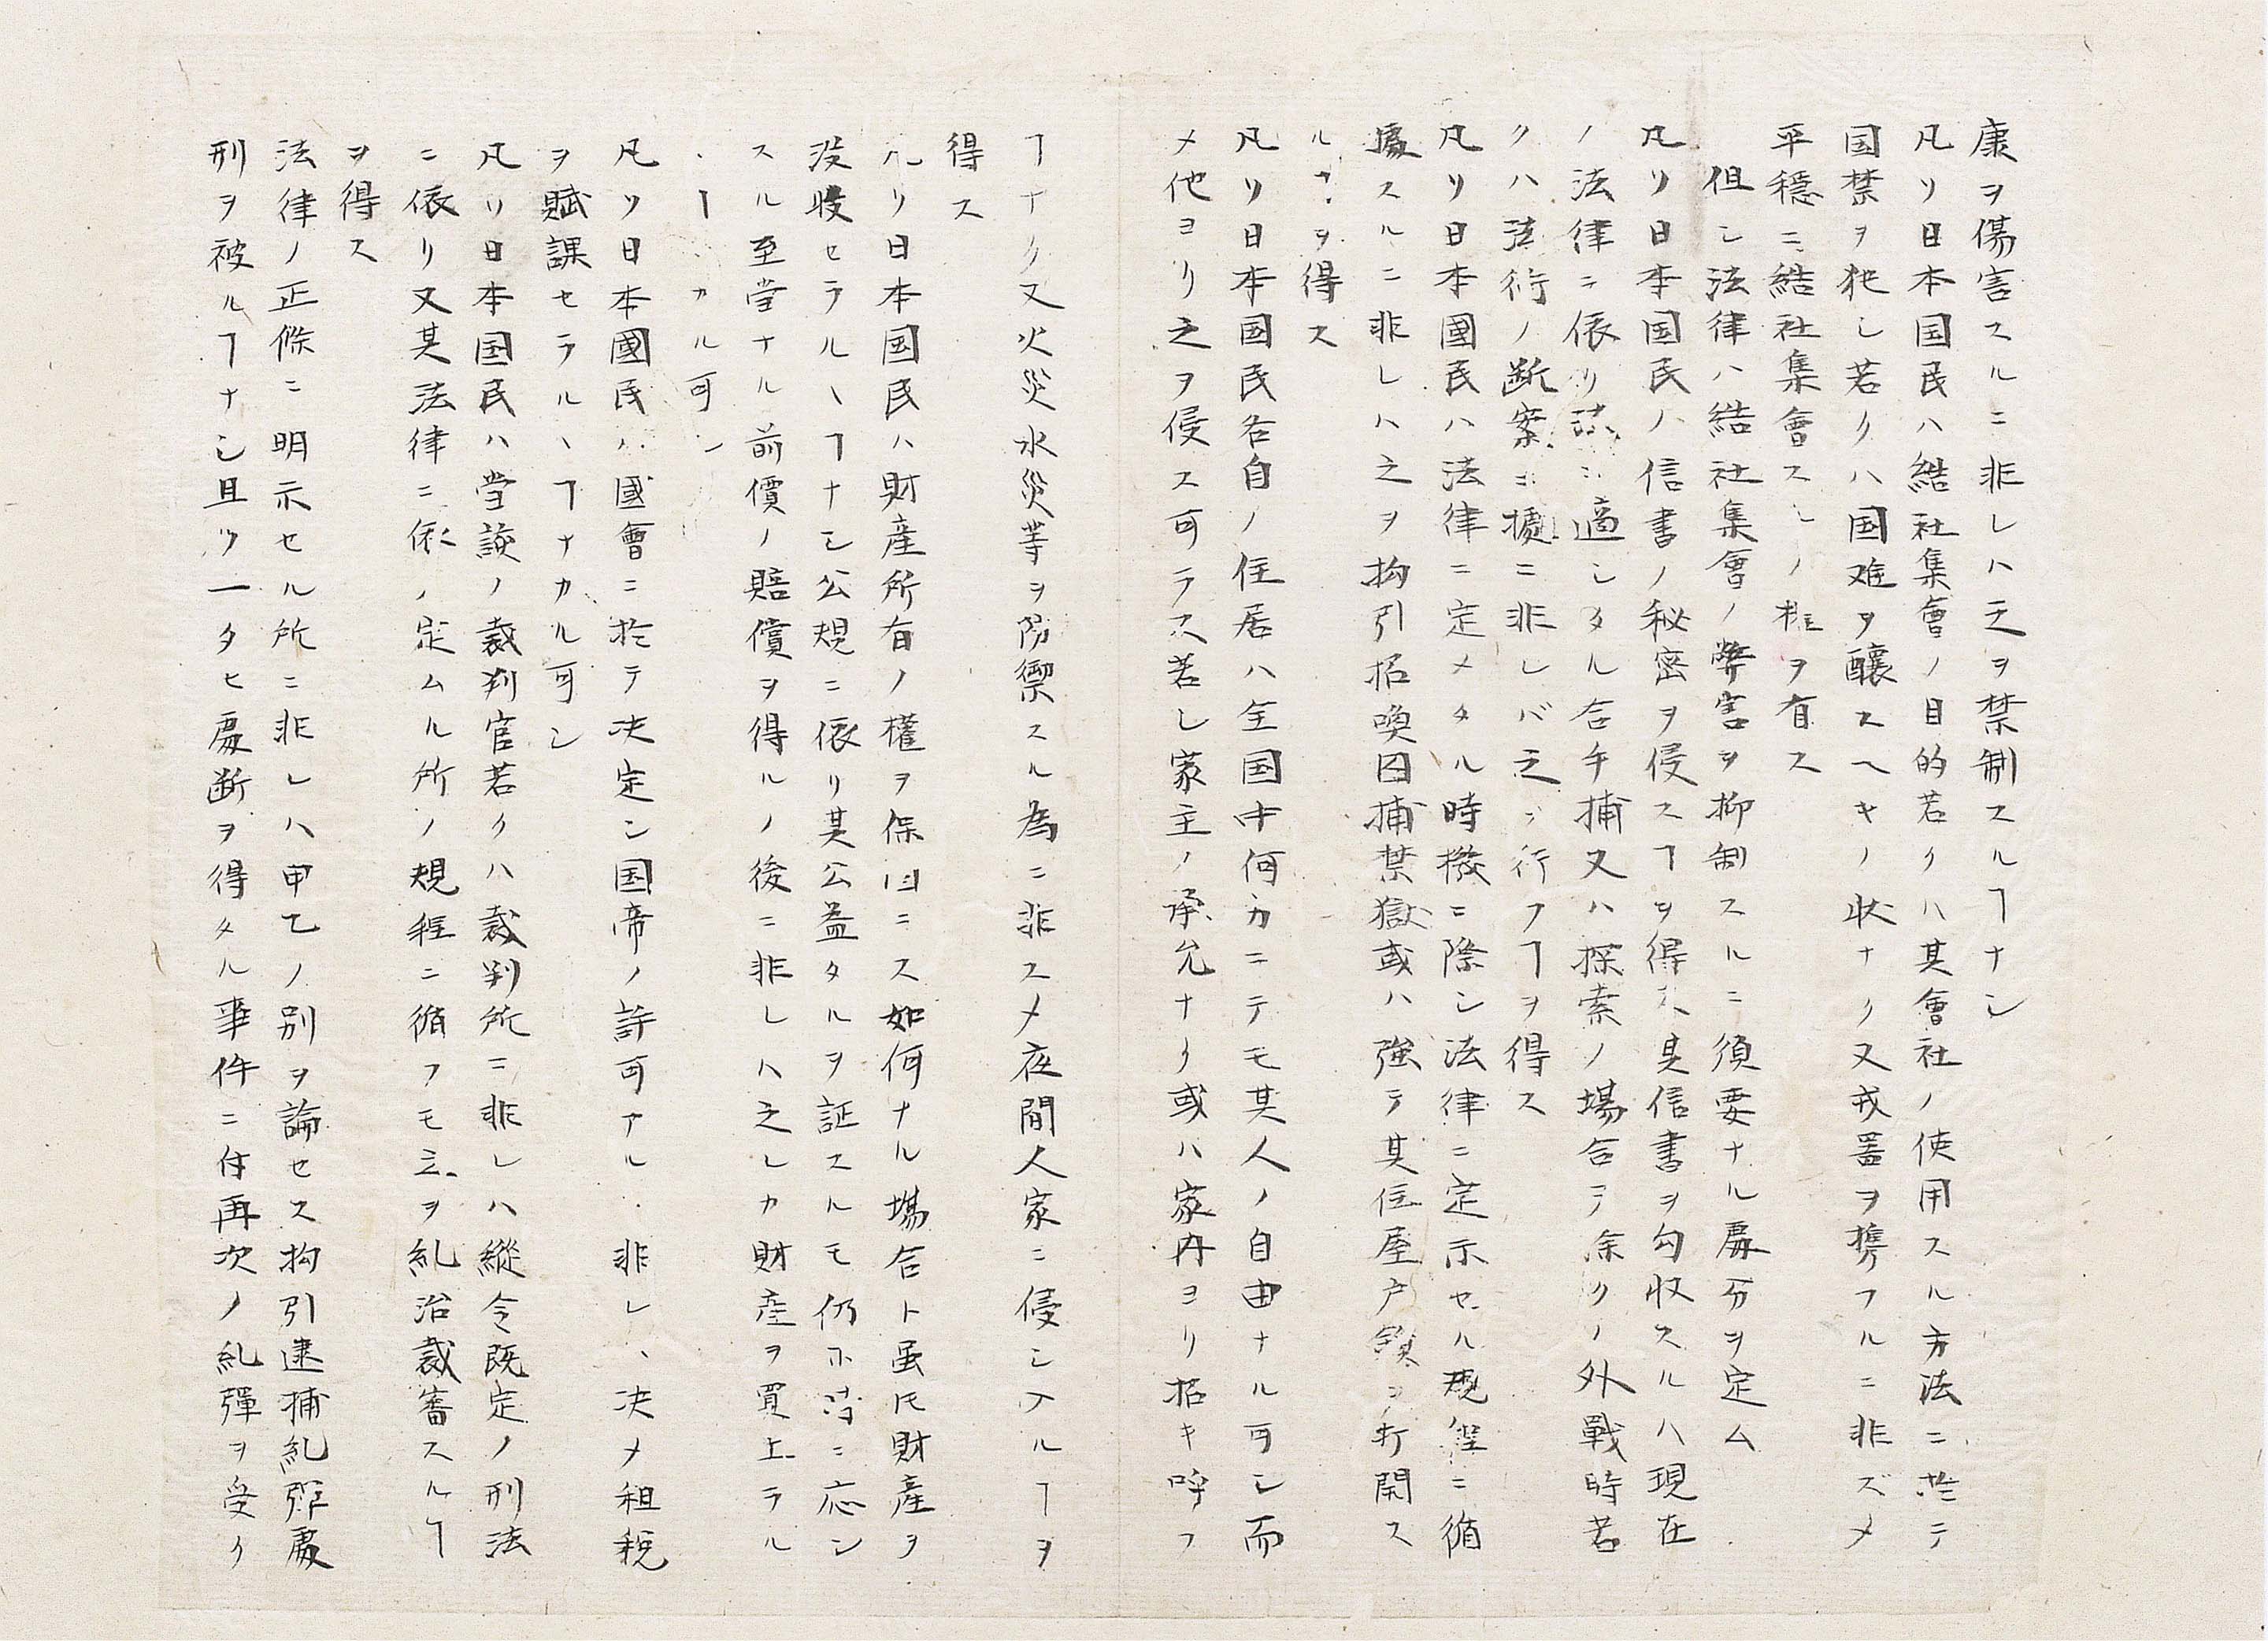 康ヲ傷害スルニ非レハ之ヲ禁制スルヿナシ
凡ソ日本国民ハ結社集會ノ目的若クハ其會社ノ使用スル方法ニ於テ
国禁ヲ犯シ若クハ国難ヲ醸スヘキノ状ナク又戎器ヲ携フルニ非ズメ
平穏ニ結社集會スルノ権ヲ有ス
但シ法律ハ結社集會ノ弊害ヲ抑制スルニ須要ナル處分ヲ定ム
凡ソ日本国民ノ信書ノ秘密ヲ侵スヿヲ得ス其信書ヲ勾収スルハ現在
ノ法律ニ依リ法ニ適シタル合手捕又ハ探索ノ場合ヲ除クノ外戦時若
クハ法衙ノ断案ニ據ニ非レバ之ヲ行フヿヲ得ス
凡ソ日本國民ハ法律ニ定メタル時機ニ際シ法律ニ定示セル規程ニ循
據スルニ非レハ之ヲ拘引招喚囚捕禁獄或ハ強テ其住屋戸鎖ヲ打開ス
ルヿヲ得ス
凡ソ日本国民各自ノ住居ハ全国中何方ニテモ其人ノ自由ナル可シ而
メ他ヨリ之ヲ侵ス可ラス若シ家主ノ承允ナク或ハ家内ヨリ招キ呼フ
ヿナク又火災水災等ヲ防禦スル為ニ非スメ夜間人家ニ侵シ入ルヿヲ
得ス
凡ソ日本国民ハ財産所有ノ權ヲ保固ニス如何ナル場合ト虽𪜈財産ヲ
没収セラルヽヿナシ公規ニ依リ其公益タルヲ証スルモ仍ホ時ニ応シ
スル至當ナル前價ノ賠償ヲ得ルノ後ニ非レハ之レカ財産ヲ買上ラル
ヽヿナカル可シ
凡ソ日本國民ハ國會ニ於テ决定シ国帝ノ許可アルニ非レハ决メ租税
ヲ賦課セラルヽヿナカル可シ
凡ソ日本国民ハ當該ノ裁判官若クハ裁判所ニ非レハ縦令既定ノ刑法
ニ依リ又其法律ニ依テ定ムル所ノ規程ニ循フモ之ヲ糺治裁審スルヿ
ヲ得ス
法律ノ正條ニ明示セル所ニ非レハ甲乙ノ別ヲ論セス拘引逮捕糺弾處
刑ヲ被ルヿナシ且ツ一タヒ處断ヲ得タル事件ニ付再次ノ糺彈ヲ受ク